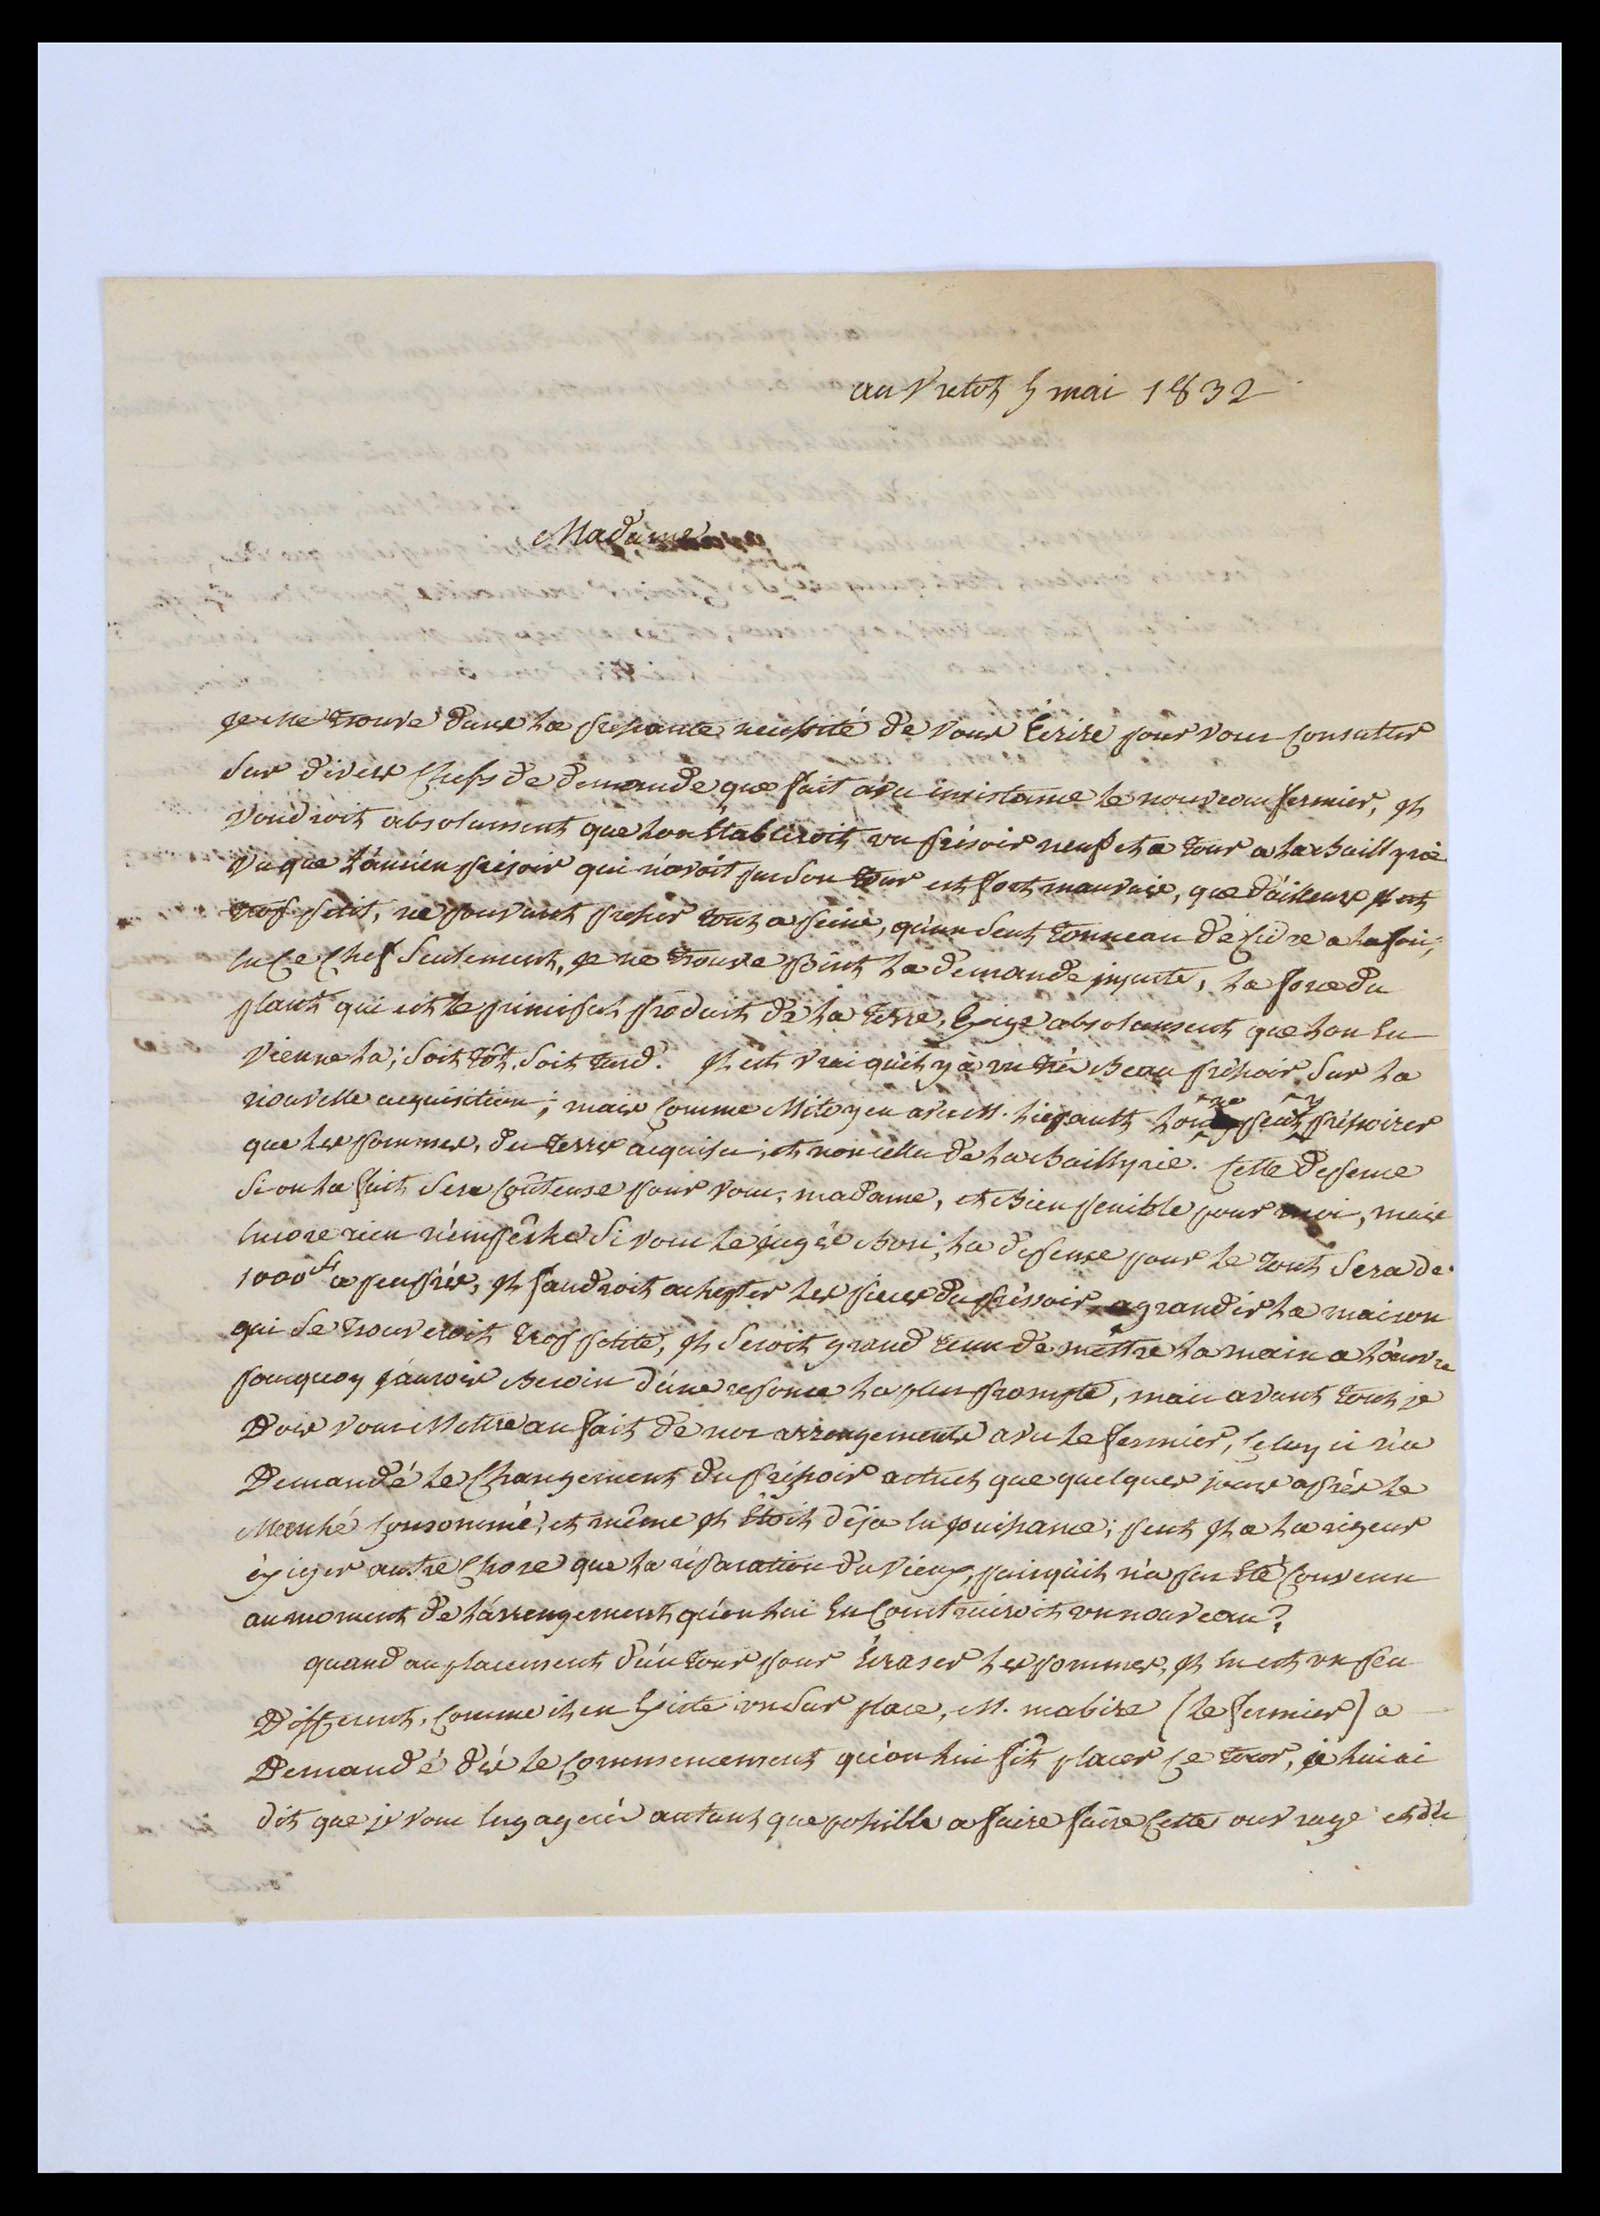 au Vretot 5 mai 1832
Madame
Je me trouve dans la pressante necessité de vous Ecrire pour vous consulter
sur divers chefs de demande que fait avec insistance le nouveau fermier, Il
voudroit absolument que l'on Etabliroit un présoir neuf et a tour a la baillyrie
vu que l'ancien présoir qui n'avoit pas son tour est fort mauvais, que d'ailleurs il est
trop petit, ne pouvant presser tout a peine, qu'un seul tonneau de cidre a la fois,
En ce chef seulement, je ne trouve point la demande injuste, la force du
plant qui est le principal produit de la terre, Exige absolument que l'on En
vienne la; soit tôt, soit tard. Il est vrai qu'il y à un très beau préssoir sur la
nouvelle acquisition; mais comme Mitoyen avec M. l'on ne peut y préssoirer
que les pommes, des terres acquises, et non celles de la baillyrie. Cette depense
si on la fait sera coûteuse pour vous, madame, et bien penible pour moi, mais
Encore rien n'empêche si vous le jugés bon; la depense pour le tout sera de
1000 a peu près, Il faudroit achepter les pieces du préssoir agrandir la maison
qui se trouveroit trop petite, Il seroit grand tems de mettre la main a l'œuvre
pourquoy j'aurois besoin d'une reponse la plus prompte, mais avant tout je
Dois vous Mettre au fait de nos arrengements avec le fermier, celuy ci n'a
Demandé le changement du préssoir actuel que quelques jours après le
Marché consommé, et même Il Etoit déja En jouissance; peut Il a la rigeur
éxiger autre chose que la réparation du vieux, puisqu'il n'a pas Eté convenu
au moment de l'arrengement qu'on lui En construiroit un nouveau?
quand au placement d'un tour pour Ecraser les pommes, Il En est un peu
Different, comme il en Existe un sur place, M. mabire (le fermier) a
Demandé dès le commencement qu'on lui fit placer ce tour, je lui ai
dit que je vous Engagerés autant que possible a faire faire cette ouvrage et de